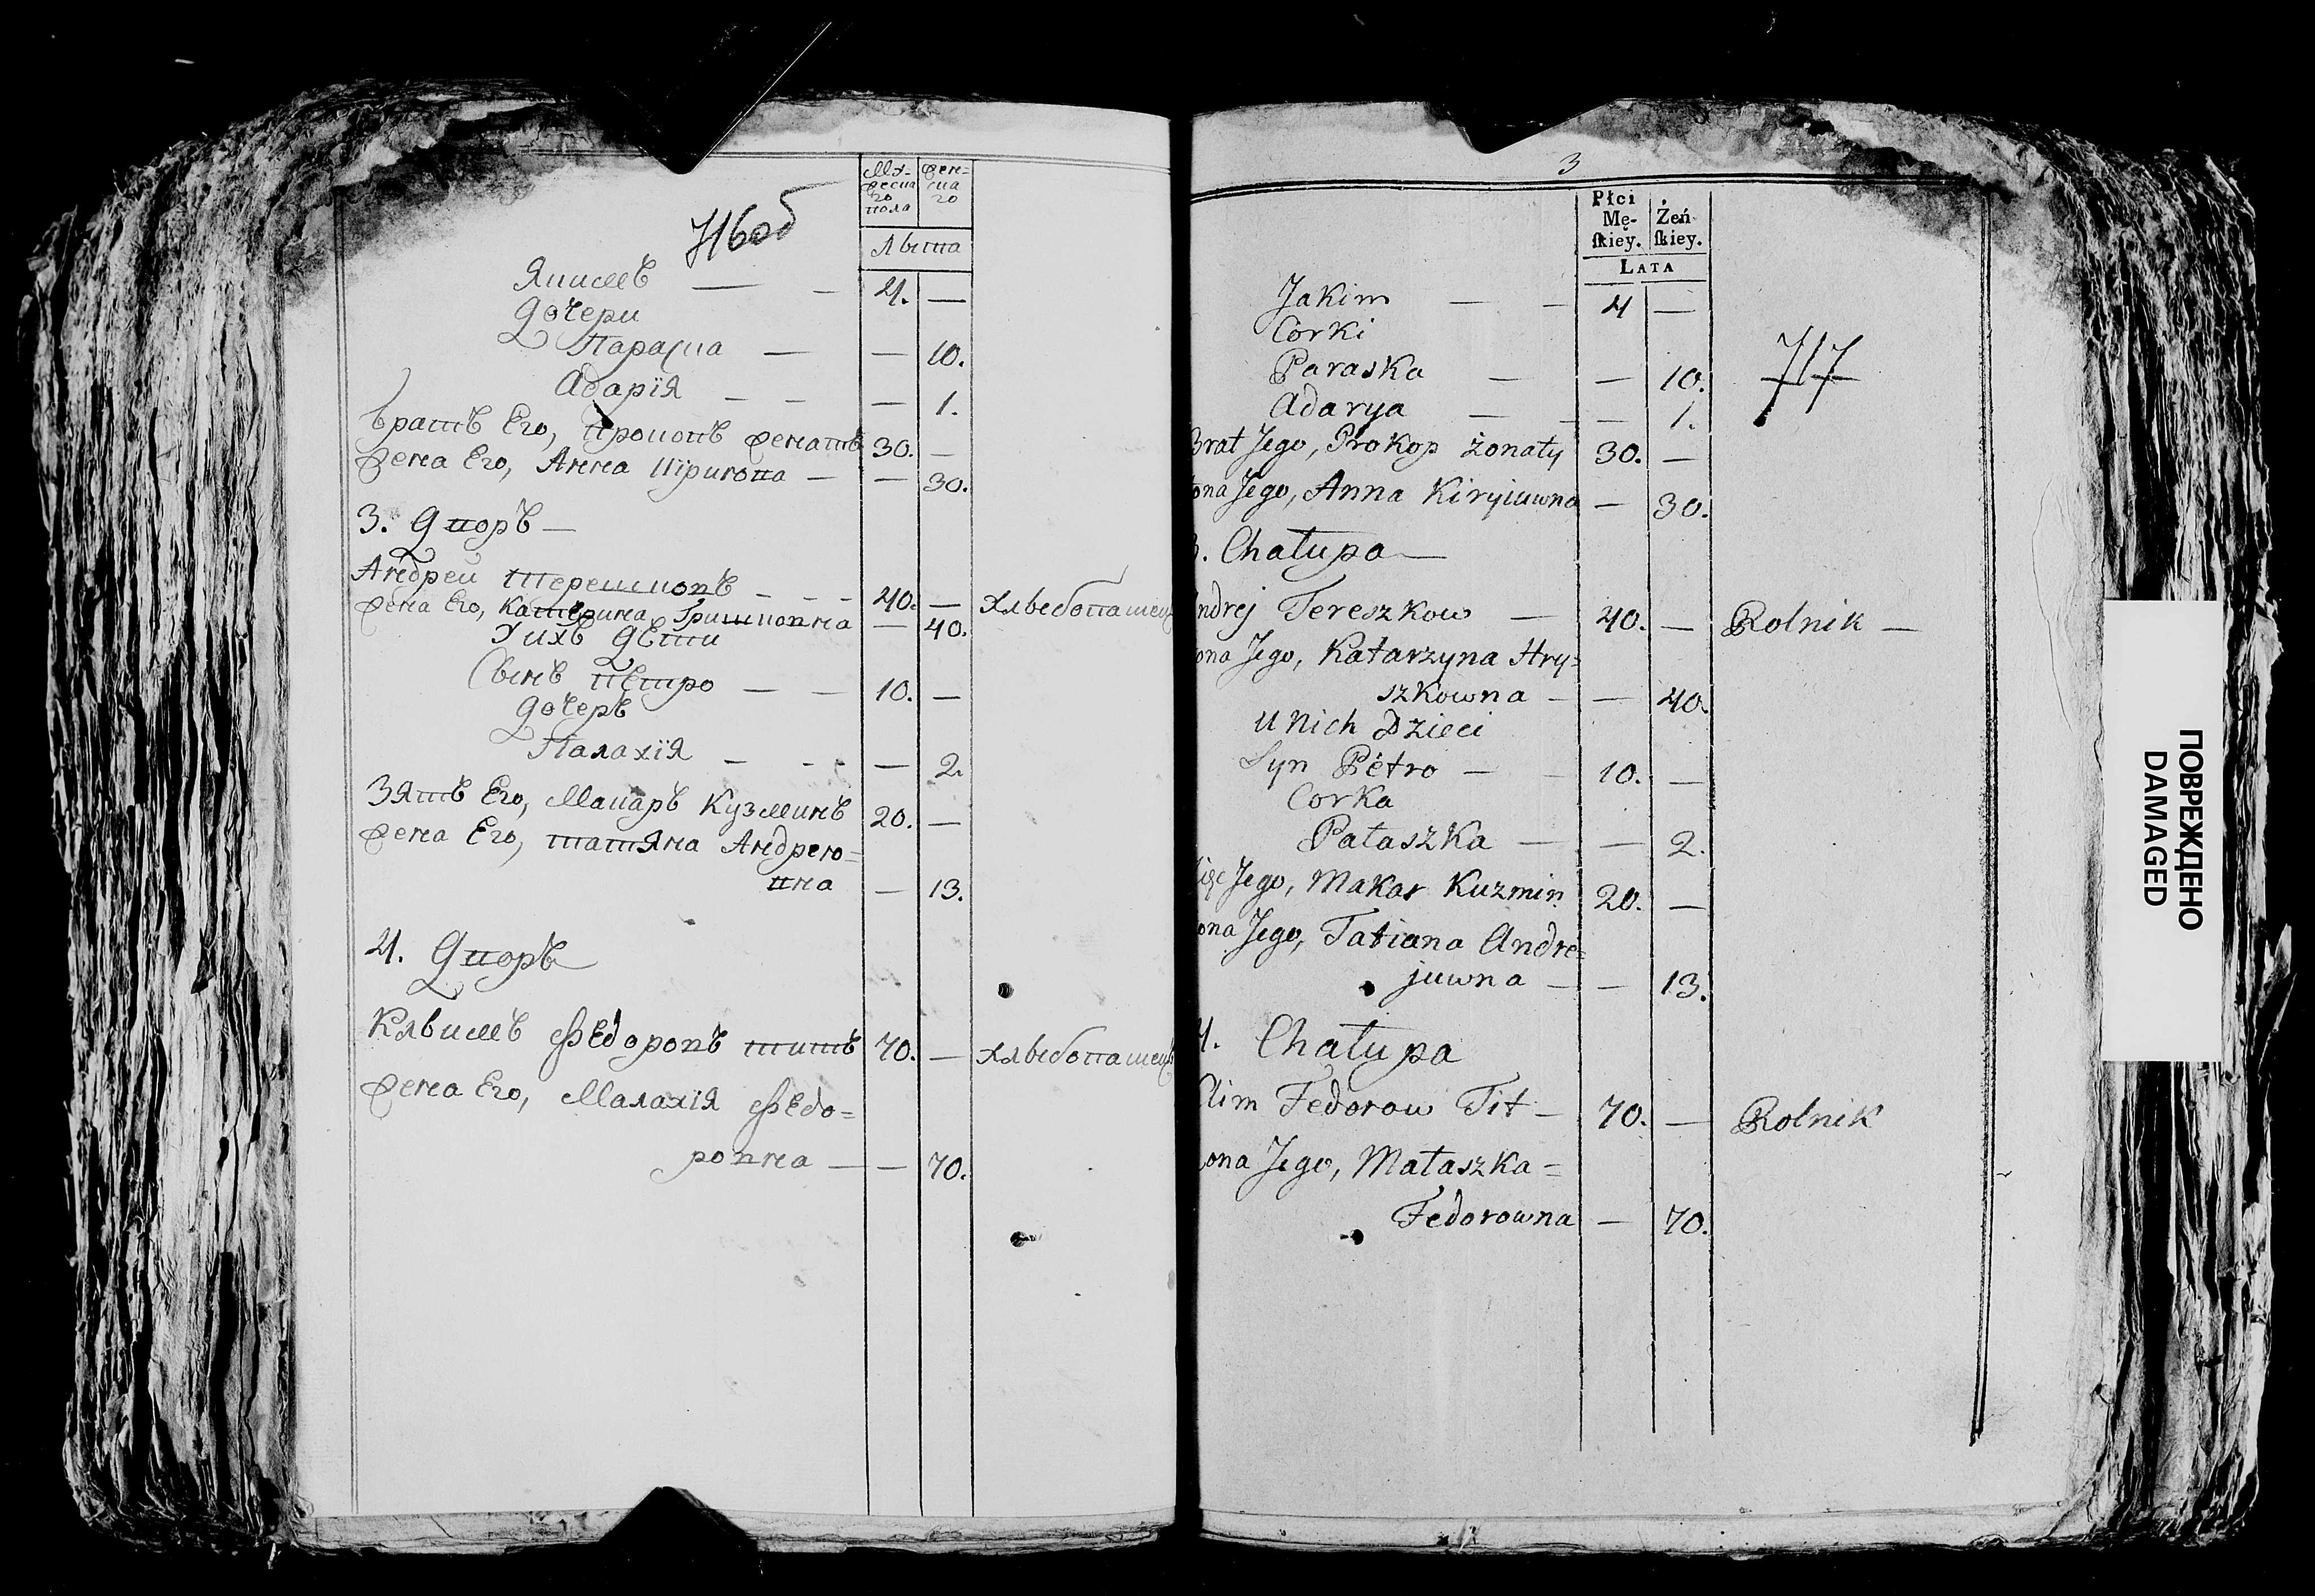 716об
Му-
жеска
го
пола
Жен=
ска
го
Лѣта
Якимъ — — 4. —
Дочери
Параска — — 10.
Адарія — — — 1.
Братъ Его, Прокопъ женатъ 30. —
Жена Его, Анна Кіриювна — — 30.
3. Дворъ —
Андрей Терешковъ - - - 40. — Хлѣбопашец
Жена Его, Катерина Гришковна — 40.
У ихъ Дѣти
Сынъ Пѣтро — — 10. —
Дочеръ
Палахія — - - — 2.
Зять Его, Макаръ Кузминъ 20. —
Жена Его, Татяна Андрею=
вна — 13.
4. Дворъ
Клѣимъ Фѣдоровъ Титъ 70. — Хлѣбопашец
Жена Его, Малахія Фѣдо=
ровна — — 70.
3
Płci
Mę-
skiey.
Żeń
skiey.
LATA
Jakim — — 4 —
Corki
717
Paraska — — 10.
Adarya — — 1.
Brat Jego, Prokop żonaty 30. —
ona Jego, Anna Kiryiuwna — 30.
3. Chałupa —
ndrej Tereszkow — 40. — Rolnik —
ona Jego, Katarzyna Hry=
szkowna — — 40.
U Nich Dzieci
Syn Pétro — — 10. —
Corka
Pałaszka — — 2.
ięc Jego, Makar Kuzmin 20. —
ona Jego, Tatiana Andre=
juwna — — 13.
4. Chałupa
Klim Fedorow Tit — 70. — Rolnik
ona Jego, Małaszka =
Fedorowna — 70.
ПОВРЕЖДЕНО
DAMAGED